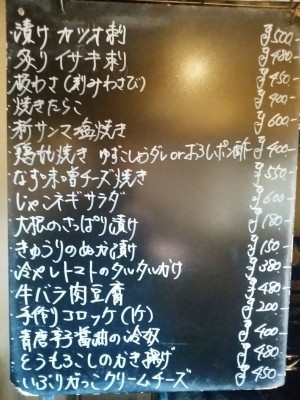 ・漬けカツオ刺 500-
・炙りイサキ刺 480-
・板わさ(刻みわさび) 450-
・焼きたらこ 400-
・新サンマ塩焼き 600-
・鶏軟焼き ゆずこしょうダレorおろしポン酢 400-
・なす味噌チーズ焼き 550-
・じゃこネギサラダ 600-
・大根のさっぱり漬け 180-
・きゅうりのぬか漬け 150-
・冷やしトマトのタルタルがけ 380-
・牛バラ肉豆腐 480-
・手作りコロッケ(1ケ) 200-
・青唐辛子醤油の冷奴 400-
・とうもろこしのかき揚げ 480-
・いぶりがっこクリームチーズ 450-